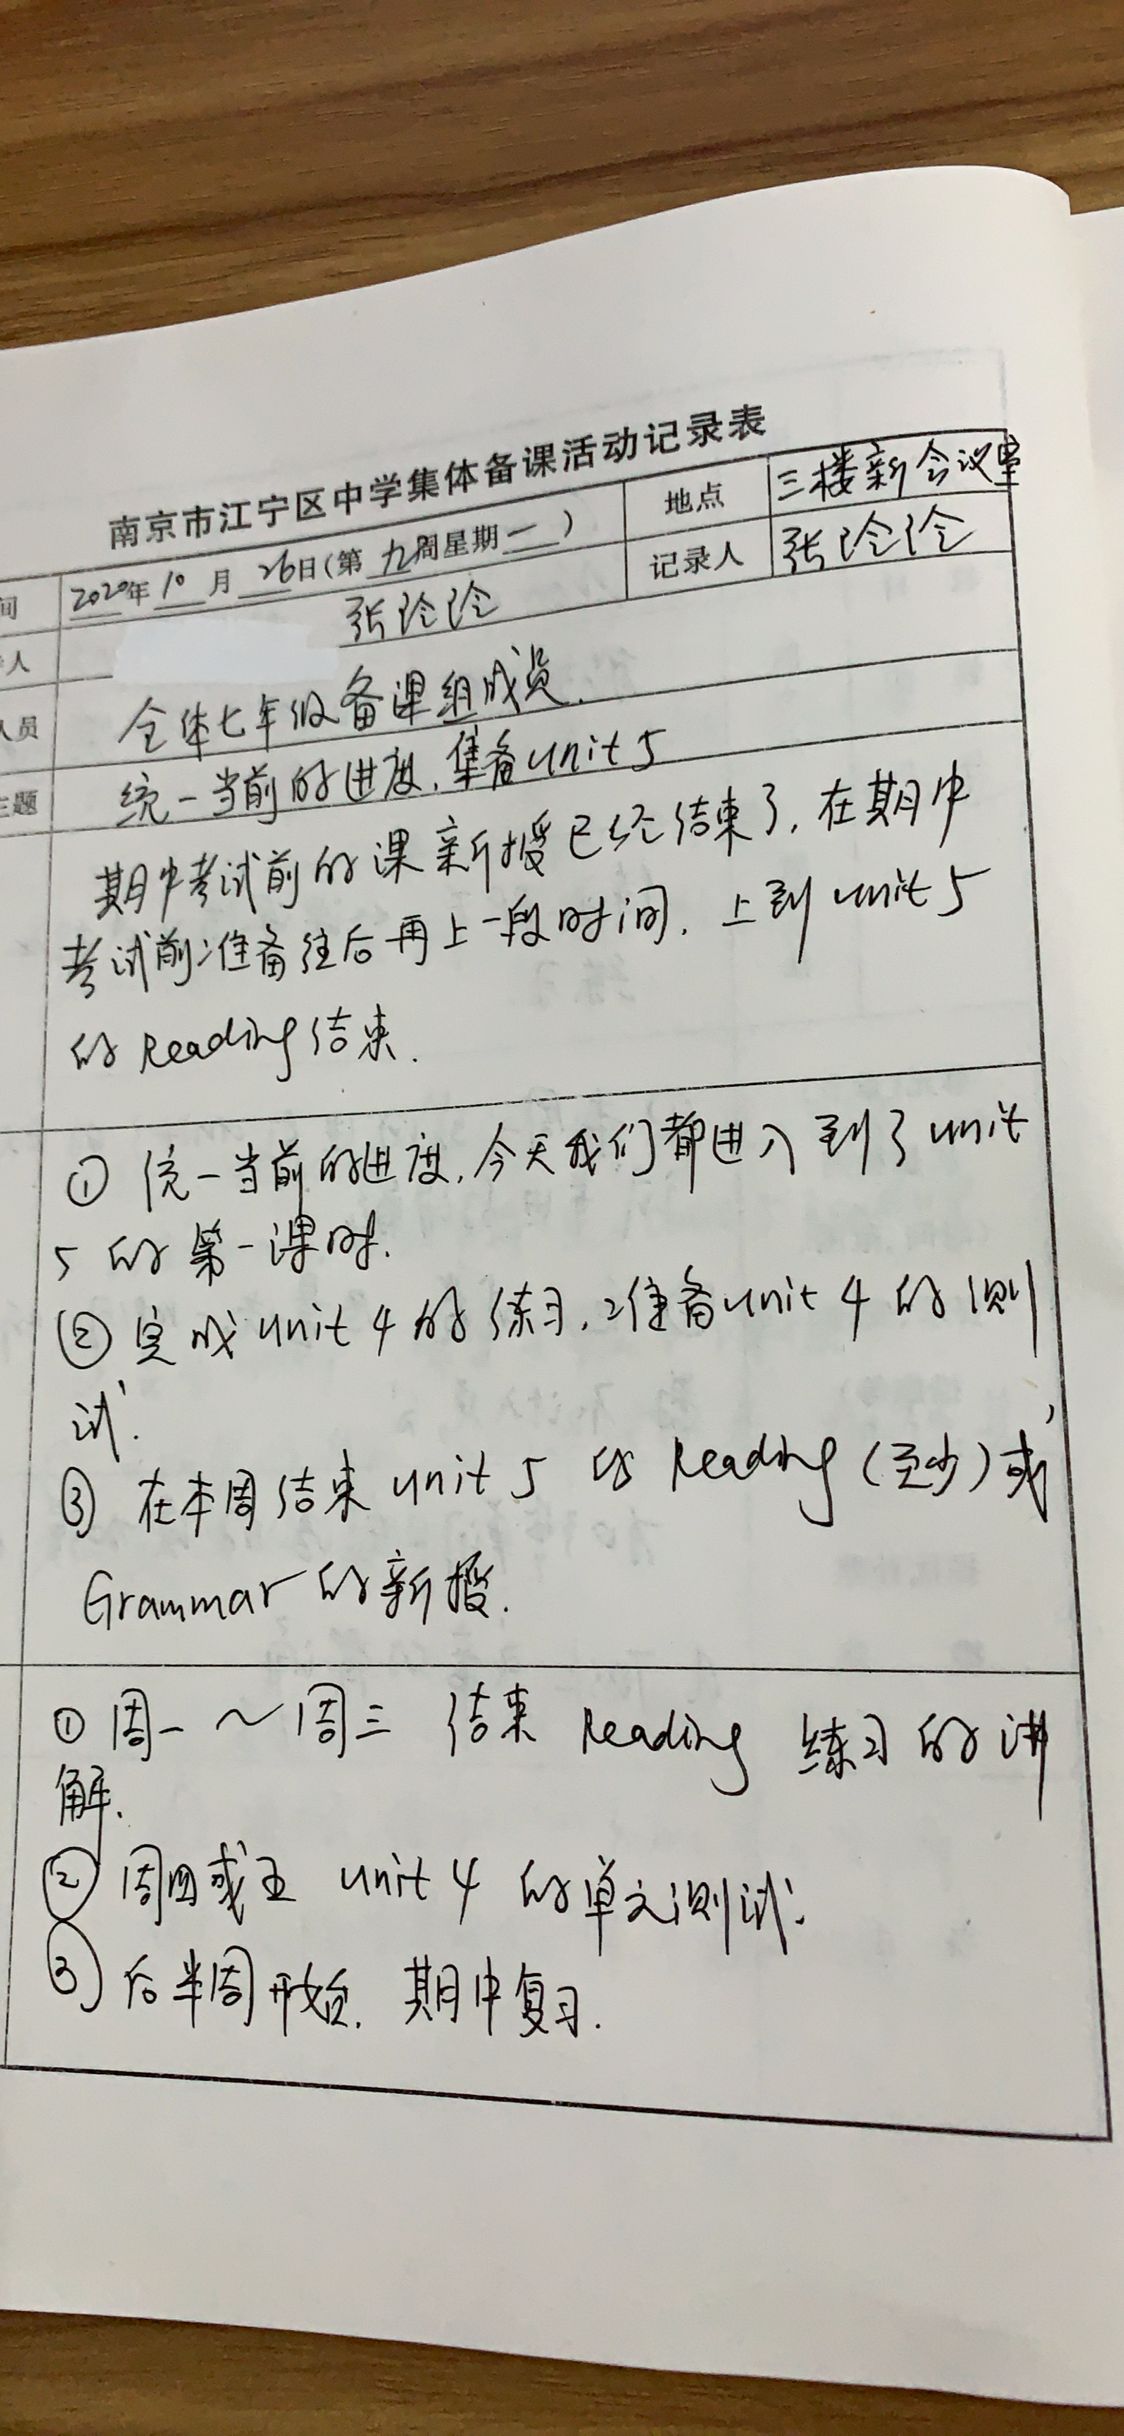 南京市江宁区中学集体备课活动记录表
间 2020年10月26日(第九周星期一) 地点 三楼新会议室
人 张玲玲 记录人 张玲玲
人员 全体七年级备课组成员.
主题 统一当前的进度,集备unit 5
期中考试前的课新授已经结束了,在期中
考试前准备往后再上一段时间,上到unit 5
的Reading结束.
① 统一当前的进度,今天我们都进入到了unit
5 的第一课时.
② 完成unit 4 的练习,准备unit 4 的测
试.
③ 在本周结束 unit 5 的 Reading (至少)或
Grammar 的新授.
① 周一~周三 结束 Reading 练习的讲
解.
② 周四或五 unit 4 的单元测试.
③ 后半周开始,期中复习.